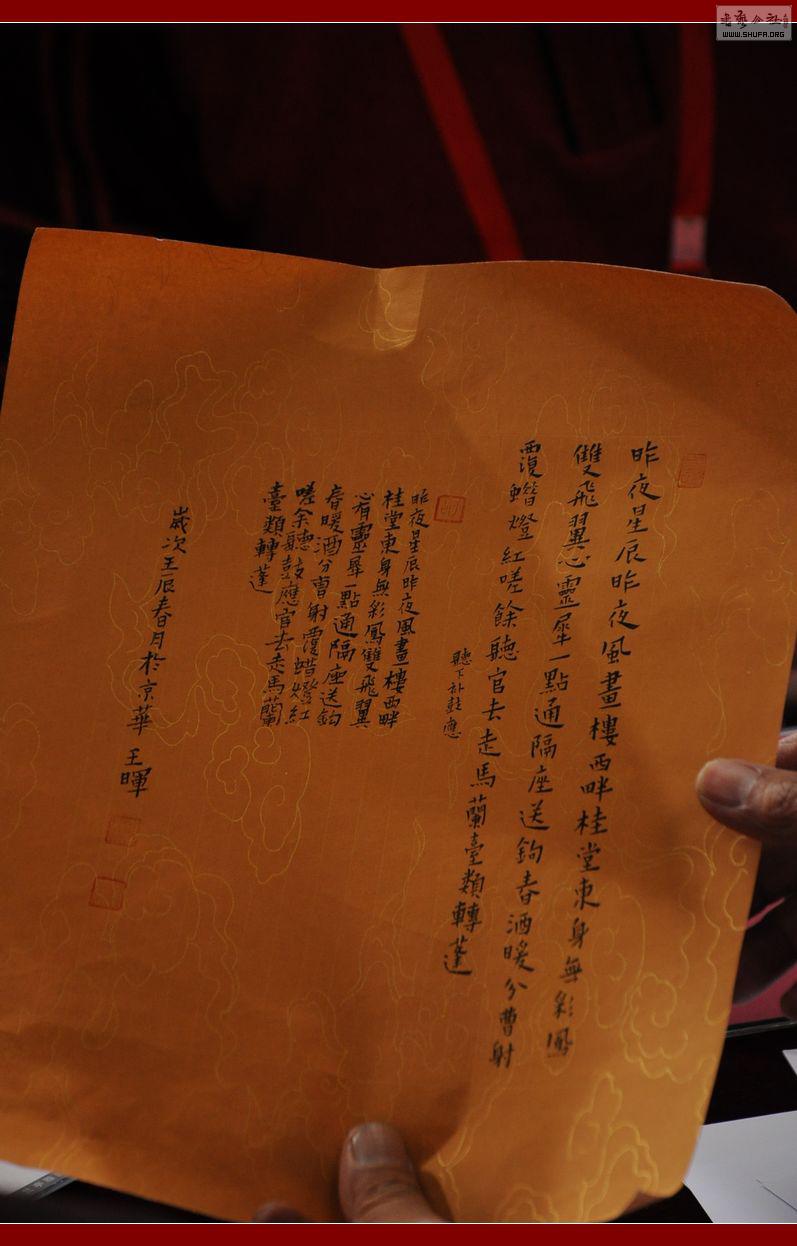 昨夜星辰昨夜風畫樓西畔桂堂東身無彩鳳
雙飛翼心靈犀一點通隔座送鉤春酒暖分曹射
覆蠟燈紅嗟餘聽官去走馬蘭臺類轉蓬
聽下補鼓應
昨夜星辰昨夜風畫樓西畔
桂堂東身無彩鳳雙飛翼
心有靈犀一點通隔座送鉤
春暖酒分曹射覆蜡燈紅
嗟余聽鼓應官去走馬蘭
臺類轉蓬
歲次壬辰春月於京華 王暉
WWW.SHUFA.ORG